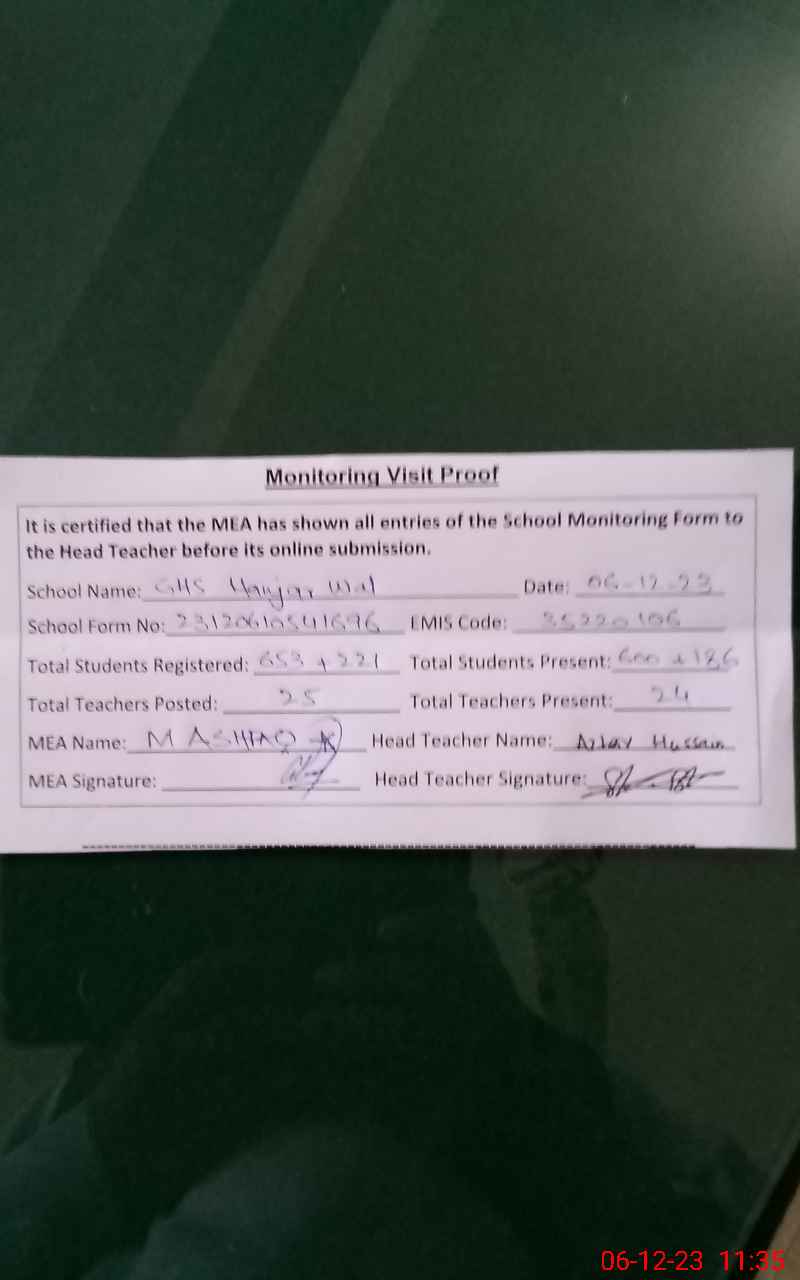 Monitoring Visit Proof
It is certified that the MEA has shown all entries of the School Monitoring Form to
the Head Teacher before its online submission.
School Name: GHS Hanjarwal Date: 06-12-23
School Form No: EMIS Code: 35220106
Total Students Registered: 653 + 221 Total Students Present: 600 + 186
Total Teachers Posted: 25 Total Teachers Present: 24
MEA Name: M ASHFAQ Head Teacher Name: Hussain
MEA Signature: Head Teacher Signature:
06-12-23 11:35